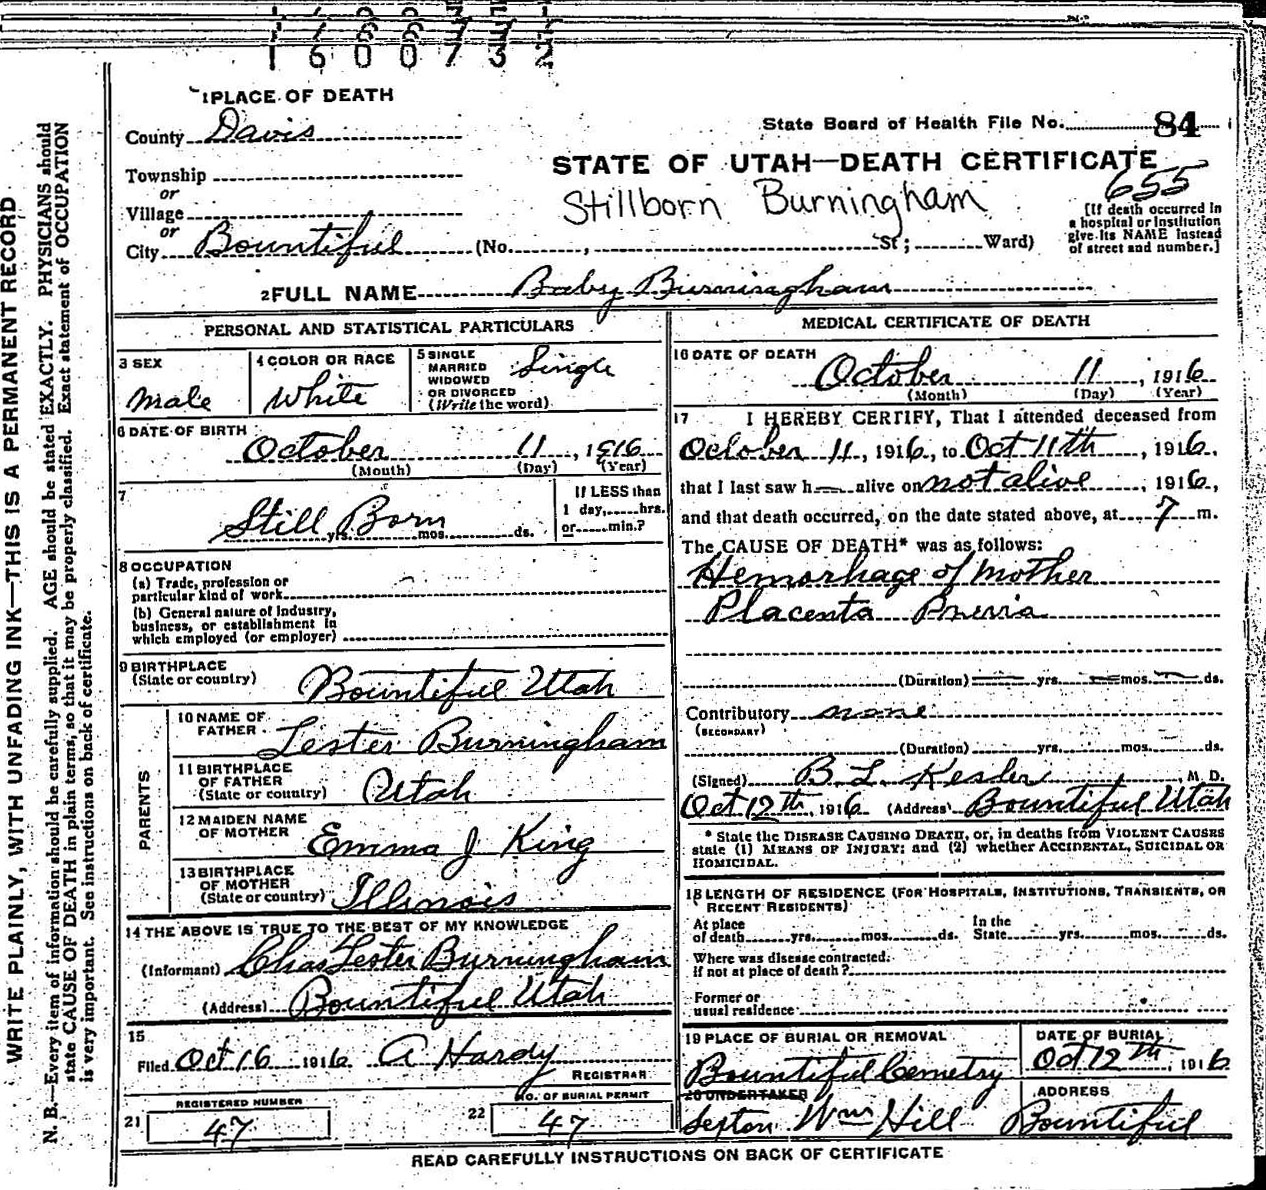 1 6 0 0 7 3 2
1 PLACE OF DEATH
County Davis
State Board of Health File No. 84
STATE OF UTAH—DEATH CERTIFICATE
655
Township
or
Village
or
City Bountiful (No. , St; Ward)
Stillborn Burningham
[If death occurred in
a hospital or institution
give its NAME instead
of street and number.]
2 FULL NAME Baby Burningham
PERSONAL AND STATISTICAL PARTICULARS
3 SEX
Male
4 COLOR OR RACE
White
5 SINGLE
MARRIED
WIDOWED
OR DIVORCED
(Write the word)
Single
6 DATE OF BIRTH
October 11, 1916
(Month) (Day) (Year)
7
Still Born
yrs. mos. ds.
If LESS than
1 day, hrs.
or min.?
8 OCCUPATION
(a) Trade, profession or
particular kind of work
(b) General nature of industry,
business, or establishment in
which employed (or employer)
9 BIRTHPLACE
(State or country) Bountiful Utah
PARENTS
10 NAME OF
FATHER Lester Burningham
11 BIRTHPLACE
OF FATHER
(State or country) Utah
12 MAIDEN NAME
OF MOTHER Emma J King
13 BIRTHPLACE
OF MOTHER
(State or country) Illinois
14 THE ABOVE IS TRUE TO THE BEST OF MY KNOWLEDGE
(Informant) Chas Lester Burningham
(Address) Bountiful Utah
15
Filed Oct 16 1916 A Hardy
REGISTRAR
REGISTERED NUMBER
21 47
NO. OF BURIAL PERMIT
22 47
MEDICAL CERTIFICATE OF DEATH
16 DATE OF DEATH
October 11, 1916
(Month) (Day) (Year)
17 I HEREBY CERTIFY, That I attended deceased from
October 11, 1916, to Oct 11th, 1916,
that I last saw h— alive on not alive, 1916,
and that death occurred, on the date stated above, at 7 m.
The CAUSE OF DEATH* was as follows:
Hemorhage of Mother
Placenta Previa
(Duration) yrs. mos. ds.
Contributory none
(SECONDARY)
(Duration) yrs. mos. ds.
(Signed) B. L. Kesler, M. D.
Oct 12th, 1916 (Address) Bountiful Utah
* State the DISEASE CAUSING DEATH, or, in deaths from VIOLENT CAUSES
state (1) MEANS OF INJURY; and (2) whether ACCIDENTAL, SUICIDAL OR
HOMICIDAL.
18 LENGTH OF RESIDENCE (FOR HOSPITALS, INSTITUTIONS, TRANSIENTS, OR
RECENT RESIDENTS)
At place
of death yrs. mos. ds.
In the
State yrs. mos. ds.
Where was disease contracted.
if not at place of death?
Former or
usual residence
19 PLACE OF BURIAL OR REMOVAL
Bountiful Cemetry
DATE OF BURIAL
Oct 12th, 1916
20 UNDERTAKER
Sexton Wm Hill
ADDRESS
Bountiful
READ CAREFULLY INSTRUCTIONS ON BACK OF CERTIFICATE
WRITE PLAINLY, WITH UNFADING INK—THIS IS A PERMANENT RECORD
N. B.—Every item of information should be carefully supplied. AGE should be stated EXACTLY. PHYSICIANS should
state CAUSE OF DEATH in plain terms, so that it may be properly classified. Exact statement of OCCUPATION
is very important. See instructions on back of certificate.